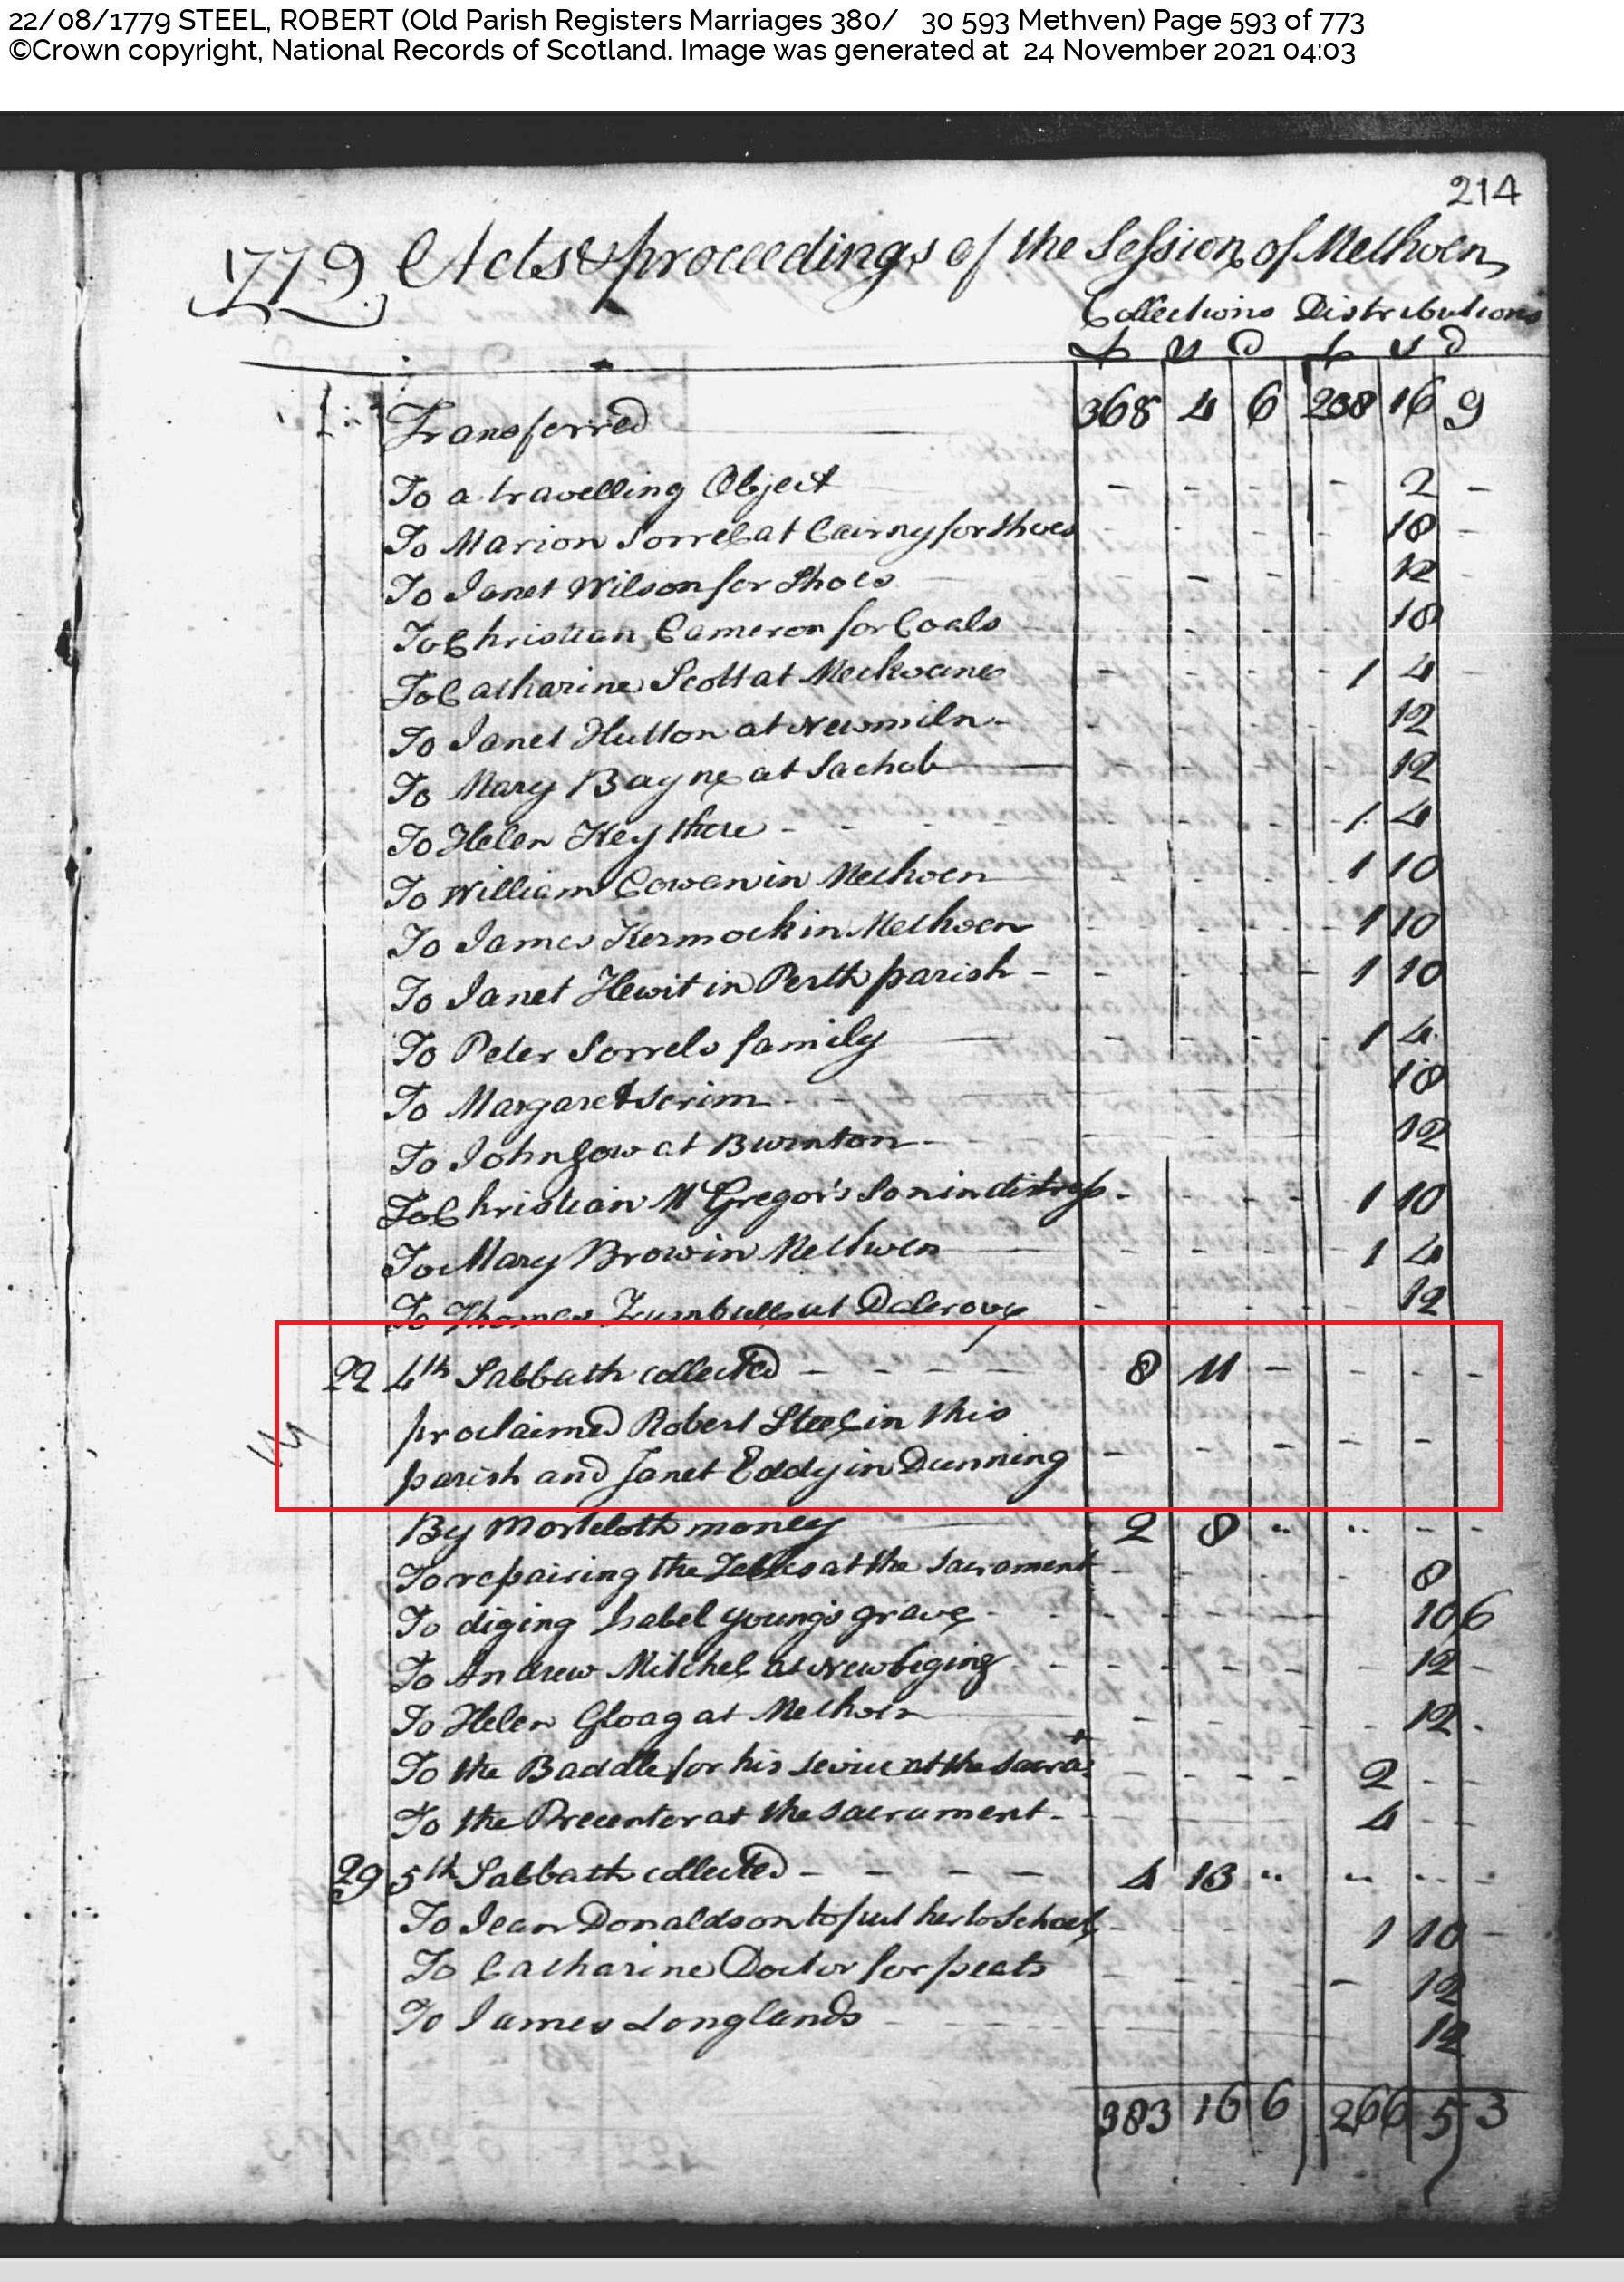 22/08/1779 STEEL, ROBERT (Old Parish Registers Marriages 380/ 30 593 Methven) Page 593 of 773
©Crown copyright, National Records of Scotland. Image was generated at 24 November 2021 04:03
214
1779 Acts & proceedings of the Session of Methven
Collections Distributions
£ s D £ s D
Transferred 368 4 6 238 16 9
To a travelling Object - - - - 2 -
To Marion Sorrel at Cairny for Shoes - - - 18 -
To Janet Wilson for Shoes - - - 12 -
To Christian Cameron for Coals - - - 18
To Catharine Scott at Meckvane - - - - 1 4 -
To Janet Hutton at Newmiln - - - - 12
To Mary Bayne at Sachob - - - - 12
To Helen Key there - - - - 1 4
To William Cowan in Methven - - - 1 10
To James Kermock in Methven - - - - 1 10
To Janet Hewit in Perth parish - - - - 1 10
To Peter Sorrels family - - - - 1 4
To Margaret Scrim - - 18
To John Gow at Burnton - - - 12
To Christian McGregor's Son in distress - - - - 1 10
To Mary Brow in Methven - - - - 1 4
To Thomas Trumbull at Dalcrove - - - - 12
22 4th Sabbath collected - - - - 8 11 - - - - -
proclaimed Robert Steel in this
parish and Janet Eddy in Dunning - - - - - -
By Mortcloth money 2 8 " " - -
To repairing the Tables at the Sacrament - - - - 8
To diging Isabel Young's grave - - - - 10 6
To Andrew Mitchel at Newbiging - - - - - 12 -
To Helen Gloag at Methven - - - - 12 -
To the Baddle for his Service at the Sacrat - - - - 2 - -
To the Precenter at the Sacrament - - - 4 - -
29 5th Sabbath collected - - - - 4 13 " " - -
To Jean Donaldson to put her to School - - - 1 10 -
To Catharine Doctor for peats - - - - 12
To James Longlands - - - - 12
383 16 6 266 5 3